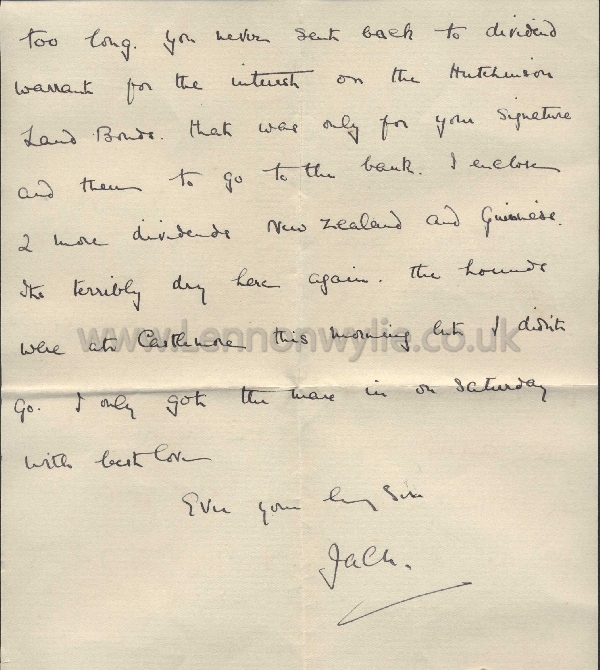 too long. you never sent back to dividend
warrant for the interest on the Hutchinson
Land Bonds. that was only for your signature
and then to go to the bank. I enclose
2 more dividends New Zealand and Guinness.
Its terribly dry here again. the hounds
were at Castlemore this morning but I didn't
www.Lennonwylie.co.uk
go. I only got the mare in on Saturday
with best love
Ever your loving Son
Jack.